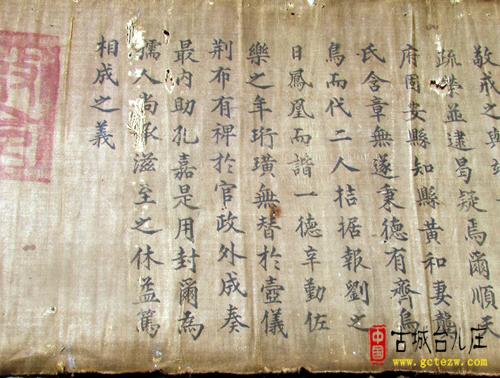 敬戒之與
疏榮並逮曷疑焉爾順天
府固安縣知縣黃和妻龔
氏含章無遂秉德有齊烏
鳥而代二人拮据報劉之
日鳳凰而諧一德辛勤佐
樂之年珩璜無替於壼儀
荆布有裨於官政外成奏
最內助孔嘉是用封爾為
孺人尚承滋至之休益篤
相成之義
中国 古城台儿庄
www.gctezw.com